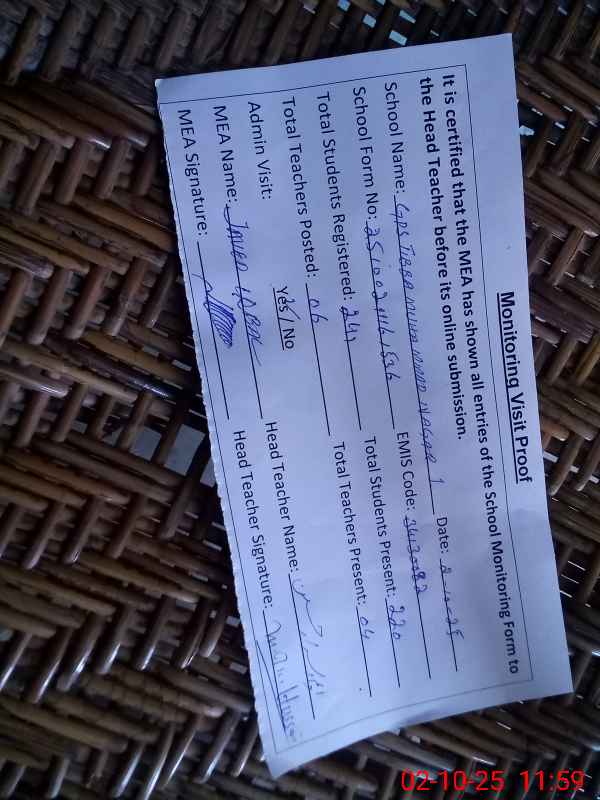 Monitoring Visit Proof
It is certified that the MEA has shown all entries of the School Monitoring Form to
the Head Teacher before its online submission.
School Name: GPS TIBBA NAGAR 1 Date: 2-10-25
School Form No: EMIS Code:
Total Students Registered: 241 Total Students Present: 220
Total Teachers Posted: 06 Total Teachers Present: 04
Admin Visit: Yes / No
MEA Name: JAVED IQBAL Head Teacher Name:
MEA Signature: Head Teacher Signature:
02-10-25 11:59